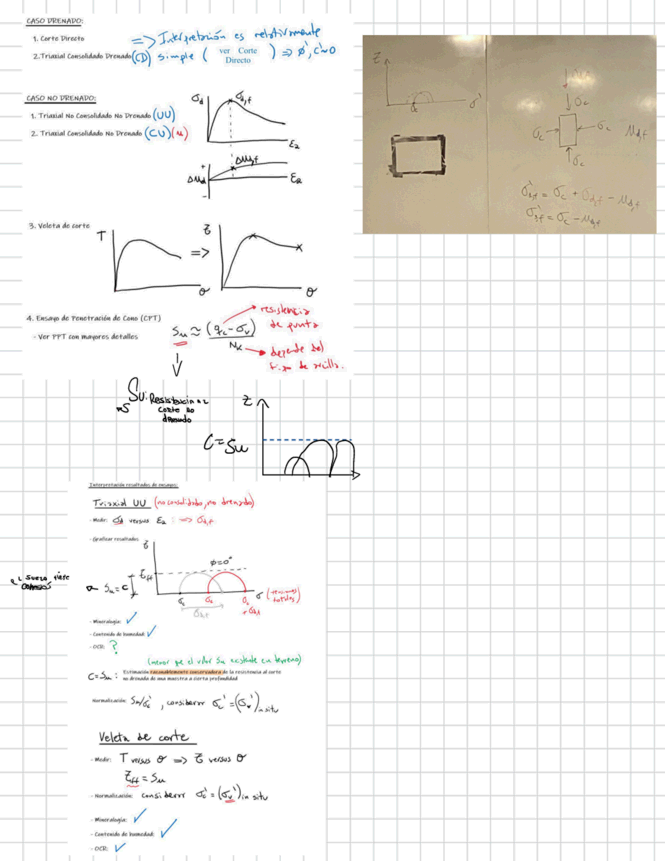 CASO DRENADO:
1. Corte Directo
2. Triaxial Consolidado Drenado (CD)
=> Interpretación es relativamente
simple ( ver Corte Directo ) => ø', c'≈0
CASO NO DRENADO:
1. Triaxial No Consolidado No Drenado (UU)
2. Triaxial Consolidado No Drenado (CU)(u)
σd
σd,f
εa
+
Δud
-
Δud,f
εa
3. Veleta de corte
T
θ
=>
τ
θ
4. Ensayo de Penetración de Cono (CPT)
- Ver PPT con mayores detalles
Su ≈ (qc-σv)
Nk
resistencia
de punta
depende del
tipo de arcilla.
Su: Resistencia al
corte no
drenado
τ
C=Su
Interpretación resultados de ensayo:
Triaxial UU (no consolidado, no drenado)
- Medir: σd versus εa : => σd,f
- Graficar resultados
τ
ø=0°
τff
Su=c
σc
σc
σc
+σd,f
σ (tensiones
totales)
σd,f
- Mineralogía: ✓
- Contenido de humedad: ✓
- OCR: ?
(menor que el valor Su existente en terreno)
C=Su : Estimación razonablemente conservadora de la resistencia al corte
no drenada de una muestra a cierta profundidad
Normalización: Su/σc' , considerar σc' =(σv')in situ
Veleta de corte
- Medir: T versus θ => τ versus θ
τff = Su
- Normalización: considerar σc' = (σv')in situ
- Mineralogía: ✓
- Contenido de humedad: ✓
- OCR: ✓
τ
σ'
σc
σc
σc
σc
ud,f
σ'1f = σc + σd,f - ud,f
σ'3f = σc - ud,f